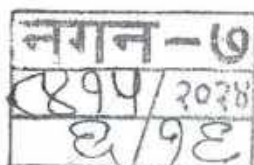 नगन-७
८४१५/२०२४
६/१६